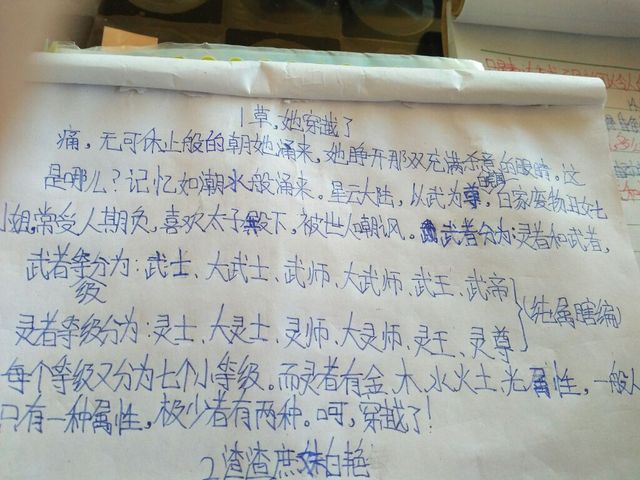 1草,她穿越了
痛,无可休止般的朝她涌来,她睁开那双充满杀意的眼睛。这
是哪儿?记忆如潮水般涌来。星云大陆,以武为尊,白家废物丑女七
小姐,常受人期负,喜欢太子殿下,被世人嘲讽。武者分为:灵者和武者,
武者等级分为:武士、大武士、武师、大武师、武王、武帝
(纯属瞎编)
灵者等级分为:灵士、大灵士、灵师、大灵师、灵王、灵尊
每个等级又分为七个小等级。而灵者有金、木、水火土、光属性,一般人
只有一种属性,极少者有两种。呵,穿越了!
2渣渣庶妹白艳